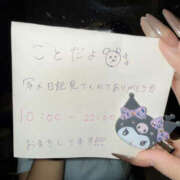 ことだよ
写メ日記見てくれてありがとう
10:00 - 22:00
お待ちしてます!!!